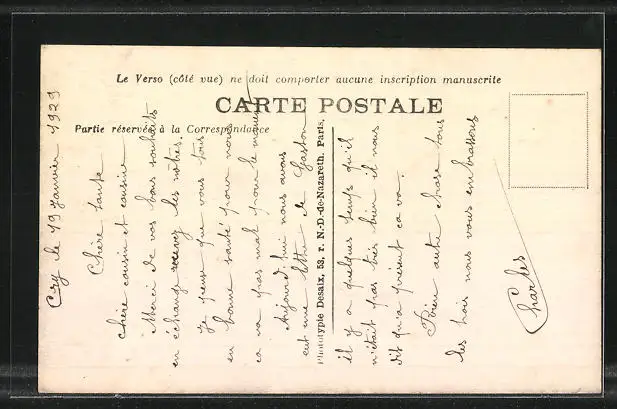 Le Verso (côté vue) ne doit comporter aucune inscription manuscrite
CARTE POSTALE
Partie réservée à la Correspondance
Phototypie Desaix, 53, r. N.-D.-de-Nazareth, Paris.
Cry le 19 janvier 1929
Chère tante
chère cousin et cousine
Merci de vos bons souhaits
en échange recevez les nôtres.
Je pense que vous tous
en bonne santé pour nous
ca va pas mal pour le moment
Aujourd'hui nous avons
eut une lettre de Gaston
il y a quelques temps qu'il
n'était pas très bien il nous
dit qu'a présent ca va.
Rien autre chose tous
les trois nous vous embrassons
Charles